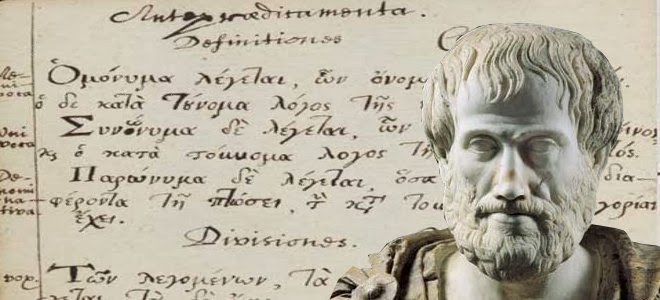 Antepraedicamenta.
Definitiones
Ὁμόνυμα λέγεται, ὧν ὄνομ
ὁ δὲ κατὰ τοὔνομα λόγος τῆς
Uni
voca
Συνώνυμα δὲ λέγεται, ὧν
ὁ κατὰ τοὔνομα λόγος τῆς
De-
nomi
na-
tiva.
Παρώνυμα δὲ λέγεται, ὅσα δια
φέροντα τῇ πτώσει, γορίαν
ἔχει.
Divisiones.
Τῶν λεγομένων, τὰ